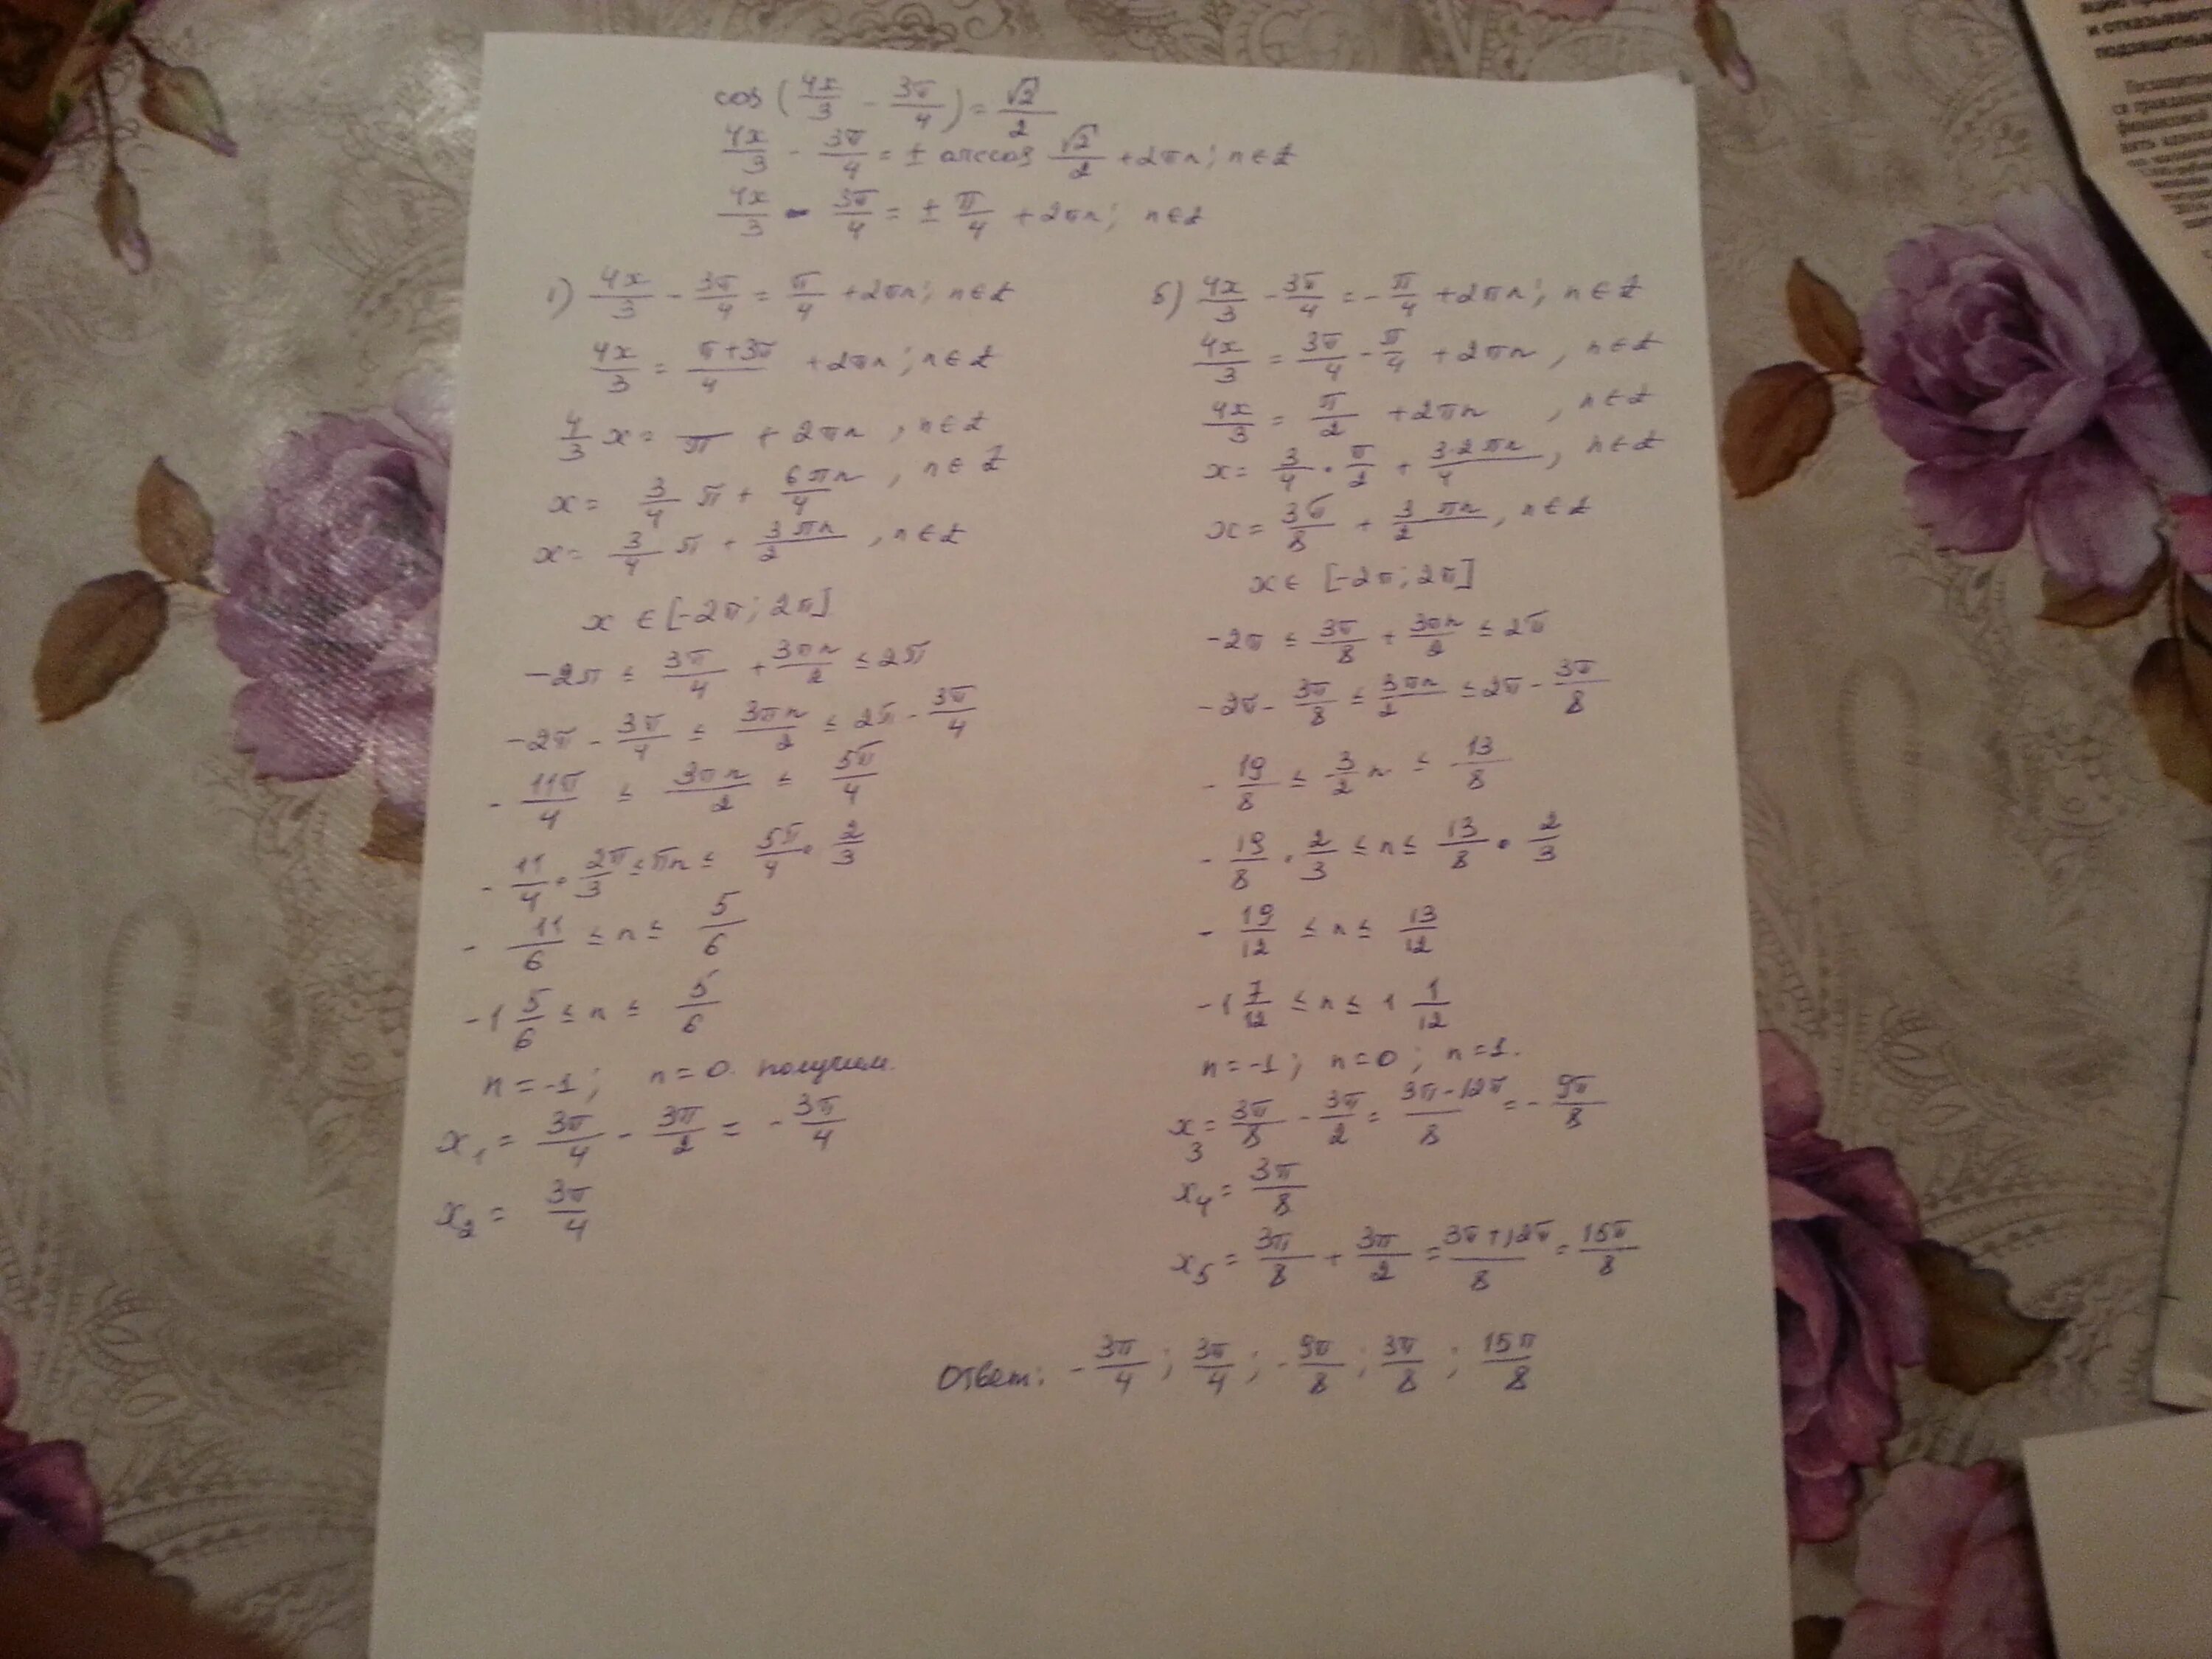 cos(4x/3 - 3π/4) = √2/2
4x/3 - 3π/4 = ± arccos √2/2 + 2πn; n∈Z
4x/3 - 3π/4 = ± π/4 + 2πn; n∈Z
1) 4x/3 - 3π/4 = π/4 + 2πn; n∈Z
4x/3 = (π+3π)/4 + 2πn; n∈Z
4/3 x = π + 2πn, n∈Z
x = 3/4 π + 6πn/4, n∈Z
x = 3/4 π + 3πn/2, n∈Z
x ∈ [-2π; 2π]
-2π ≤ 3π/4 + 3πn/2 ≤ 2π
-2π - 3π/4 ≤ 3πn/2 ≤ 2π - 3π/4
- 11π/4 ≤ 3πn/2 ≤ 5π/4
- 11/4 · 2π/3 ≤ πn ≤ 5π/4 · 2/3
- 11/6 ≤ n ≤ 5/6
-1 5/6 ≤ n ≤ 5/6
n = -1; n = 0 получим.
x₁ = 3π/4 - 3π/2 = - 3π/4
x₂ = 3π/4
б) 4x/3 - 3π/4 = - π/4 + 2πn; n∈Z
4x/3 = 3π/4 - π/4 + 2πn, n∈Z
4x/3 = π/2 + 2πn, n∈Z
x = 3/4 · π/2 + 3·2πn/4, n∈Z
x = 3π/8 + 3/2 πn, n∈Z
x ∈ [-2π; 2π]
-2π ≤ 3π/8 + 3πn/2 ≤ 2π
-2π - 3π/8 ≤ 3πn/2 ≤ 2π - 3π/8
- 19/8 ≤ 3/2 n ≤ 13/8
- 19/8 · 2/3 ≤ n ≤ 13/8 · 2/3
- 19/12 ≤ n ≤ 13/12
-1 7/12 ≤ n ≤ 1 1/12
n = -1; n = 0; n = 1.
x₃ = 3π/8 - 3π/2 = (3π-12π)/8 = - 9π/8
x₄ = 3π/8
x₅ = 3π/8 + 3π/2 = (3π+12π)/8 = 15π/8
Ответ: - 3π/4; 3π/4; - 9π/8; 3π/8; 15π/8
и отказывает
подзащитны